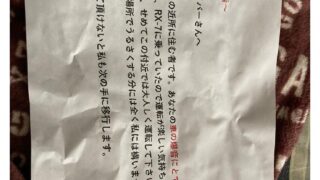 バーさんへ
の近所に住む者です。あなたの車の爆音にとて
RX-7に乗っていたので運転が楽しい気持ち
、せめてこの付近では大人しく運転して下さい
場所でうるさくする分には全く私には構いま
て頂けないと私も次の手に移行します。